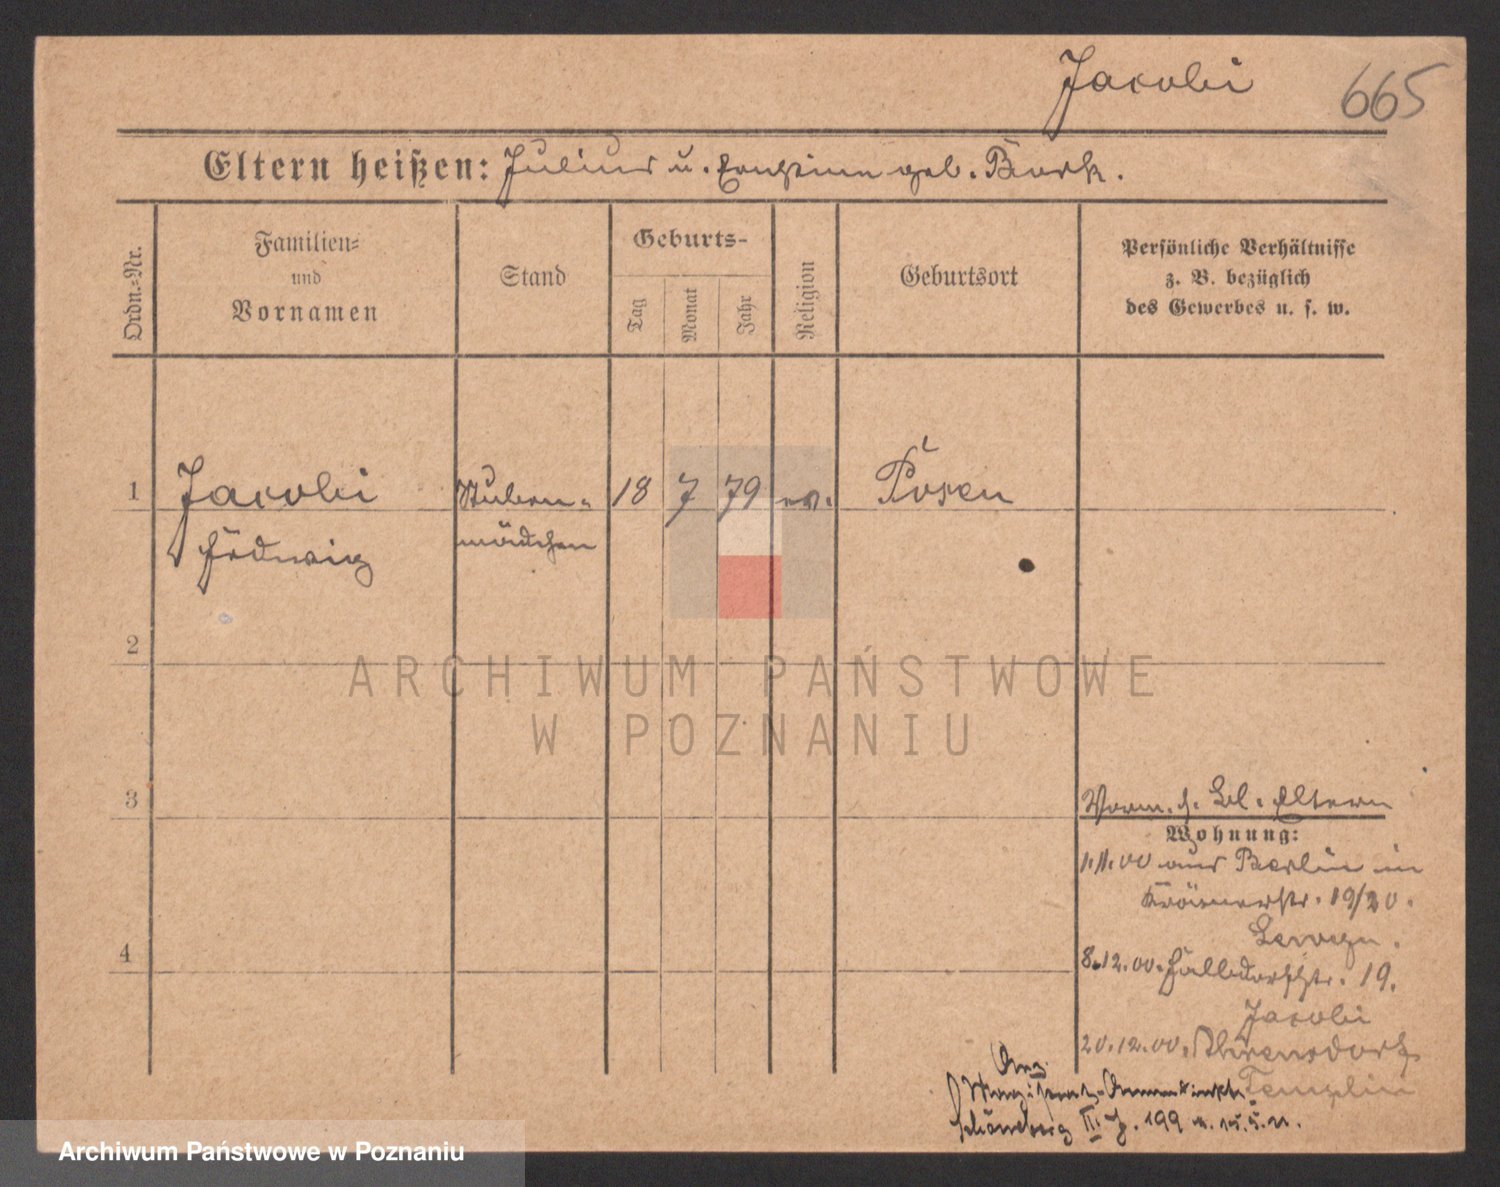 Jacobi
665
Eltern heißen: Julius u. geb. Bork.
Ordn.-Nr.
Familien-
und
Vornamen
Stand
Geburts-
Tag
Monat
Jahr
Religion
Geburtsort
Persönliche Verhältnisse
z. B. bezüglich
des Gewerbes u. s. w.
1 Jacobi Stuben- 18 7 79 ev. Posen
Hedwig mädchen
2
ARCHIWUM PAŃSTWOWE
W POZNANIU
3
Vorm. s. Bl. Eltern
Wohnung:
1.11.00 aus Berlin in
Krämerstr. 19/20.
4
8.12.00. Halbdorfstr. 19.
Jacobi
20.12.00. Ahrensdorf
Templin
Schöneberg III J. 199 v. 15.5.11.
Archiwum Państwowe w Poznaniu